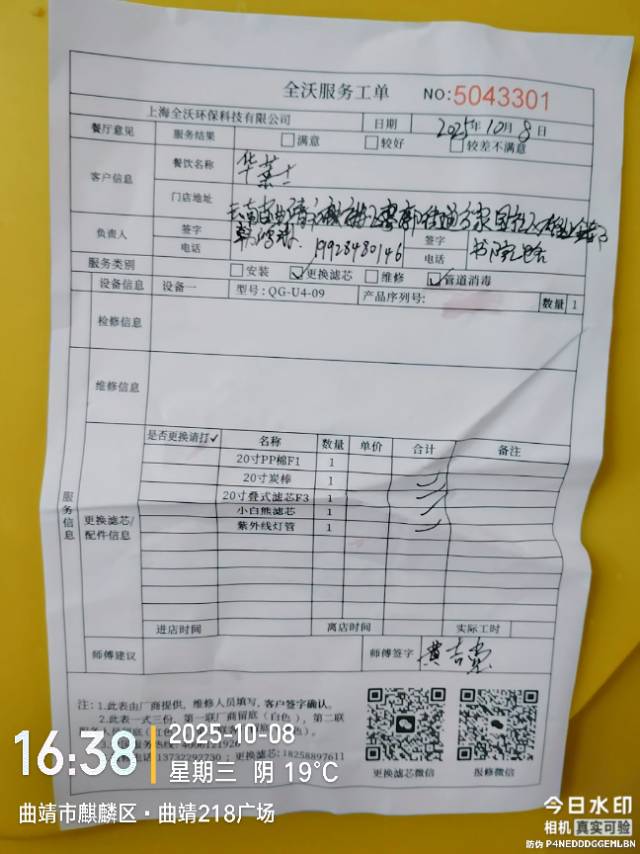 全沃服务工单 NO:5043301
上海全沃环保科技有限公司 日期 2025年10月8日
餐厅意见 服务结果 满意 较好 较差不满意
客户信息 餐饮名称 华莱士
门店地址 云南省曲靖市麒麟区
负责人 签字 签字
电话 19928480146 电话
服务类别 安装 ✓更换滤芯 维修 ✓管道消毒
设备信息 设备一 型号:QG-U4-09 产品序列号: 数量 1
检修信息
维修信息
服务信息
更换滤芯/配件信息
是否更换请打✓ 名称 数量 单价 合计 备注
20寸PP棉F1 1
20寸炭棒 1
20寸叠式滤芯F3 1
小白熊滤芯 1
紫外线灯管 1
进店时间 离店时间 实际工时
师傅建议 师傅签字
注:1.此表由厂商提供,维修人员填写,客户签字确认。
2.此表一式三份,第一联厂商留底(白色),第二联
更换滤芯:18258897611
更换滤芯微信 报修微信
16:38 2025-10-08
星期三 阴 19°C
曲靖市麒麟区·曲靖218广场
今日水印
相机 真实可验
防伪 P4NEDDDGGEMLBN